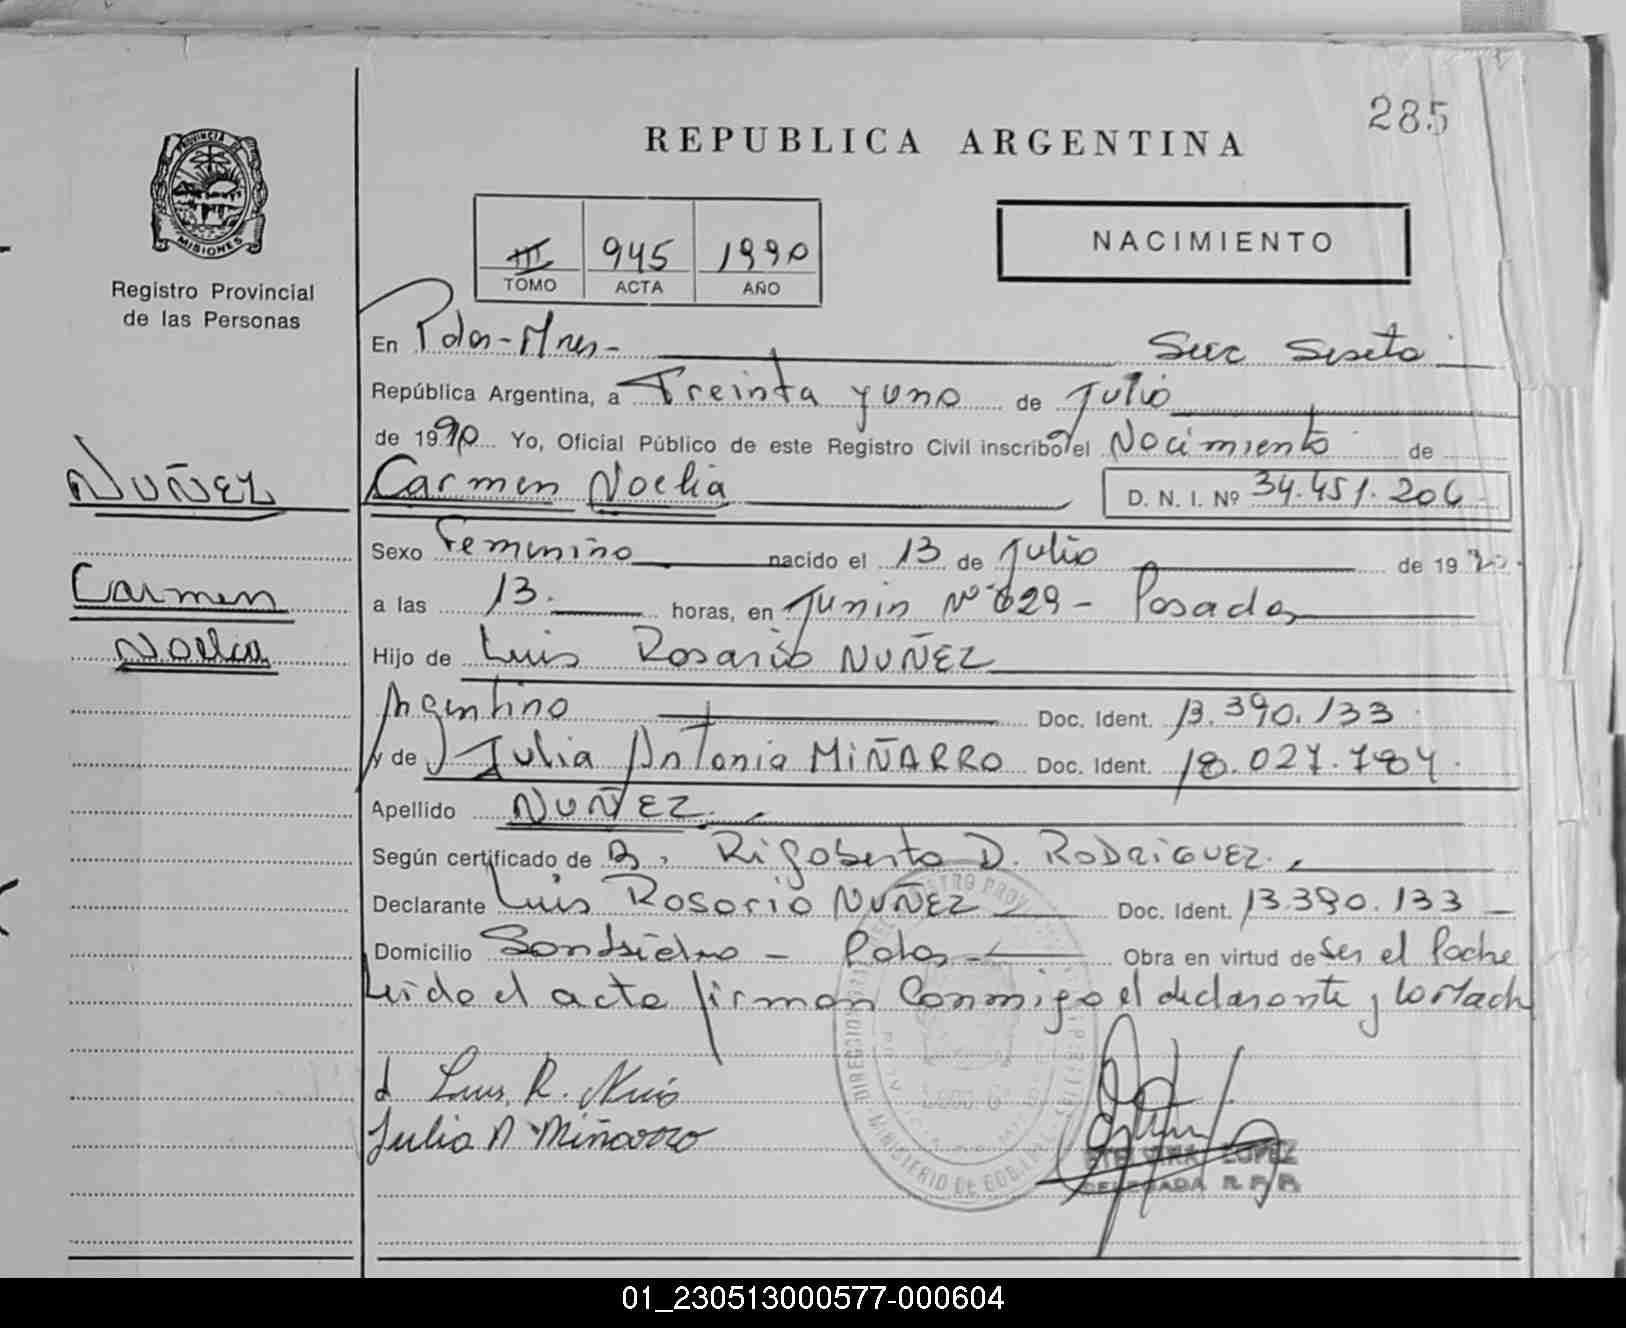 285
REPUBLICA ARGENTINA
PROVINCIA DE MISIONES
Registro Provincial
de las Personas
III 945 1990
TOMO ACTA AÑO
NACIMIENTO
En Pdas-Mnes- Secc Sexta
República Argentina, a Treinta y uno de Julio
de 1990 Yo, Oficial Público de este Registro Civil inscribo el Nacimiento de
NUÑEZ Carmen Noelia D. N. I. Nº 34.451.206
Sexo Femenino nacido el 13 de Julio de 1990
Carmen
a las 13. horas, en Junin Nº 629 - Posadas
Noelia
Hijo de Luis Rosario NUÑEZ
Argentino Doc. Ident. 13.390.133
y de Julia Antonia MIÑARRO Doc. Ident. 18.027.784
Apellido NUÑEZ
Según certificado de Rigoberto D. RODRIGUEZ.
Declarante Luis Rosario NUÑEZ Doc. Ident. 13.390.133
Domicilio - Pdas - Obra en virtud de Ser el Padre
Leido el acta firman Conmigo el declarante y la Madre
Luis R. Nuñes
Julia A Miñarro
LOPEZ
DELEGADA R. P. P.
01_230513000577-000604